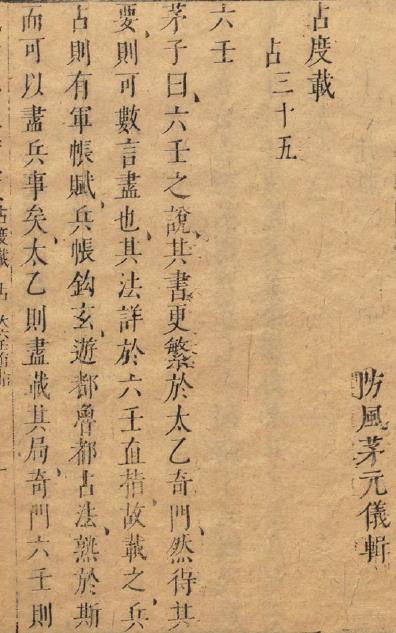 防風茅元儀輯
占度載
占三十五
六壬
茅子曰六壬之說其書更繁於太乙奇門然得其
要則可數言盡也其法詳於六壬直指故載之兵
占則有軍帳賦兵帳鈎玄遊都魯都占法熟於斯
而可以盡兵事矣太乙則盡載其局奇門六壬則